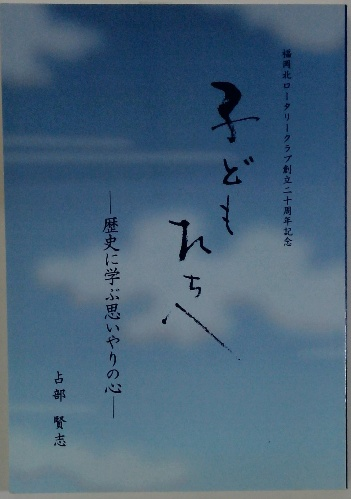 福岡北ロータリークラブ創立二十周年記念
子どもたちへ
―歴史に学ぶ思いやりの心―
占部 賢志